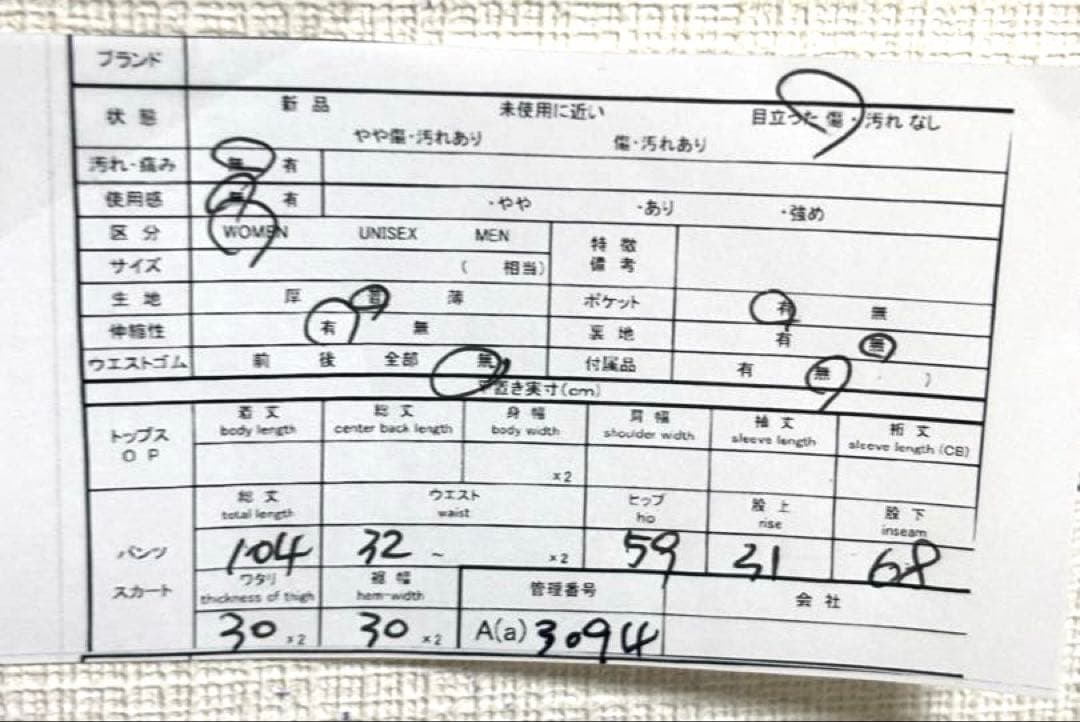 ブランド
状態 新品 未使用に近い 目立った傷・汚れなし
やや傷・汚れあり 傷・汚れあり
汚れ・痛み 無 有
使用感 無 有 ・やや ・あり ・強め
区分 WOMEN UNISEX MEN 特徴
備考
サイズ ( 相当)
生地 厚 普 薄 ポケット 有 無
伸縮性 有 無 裏地 有 無
ウエストゴム 前 後 全部 無 付属品 有 無 )
平置き実寸(cm)
トップス
OP
着丈 総丈 身幅 肩幅 袖丈 裄丈
body length center back length body width shoulder width sleeve length sleeve length (CB)
x2
総丈 ウエスト ヒップ 股上 股下
total length waist hip rise inseam
パンツ 104 32 ~ x2 59 31 68
スカート ワタリ 裾幅 管理番号 会社
thickness of thigh hem-width
30 x2 30 x2 A(a) 3094